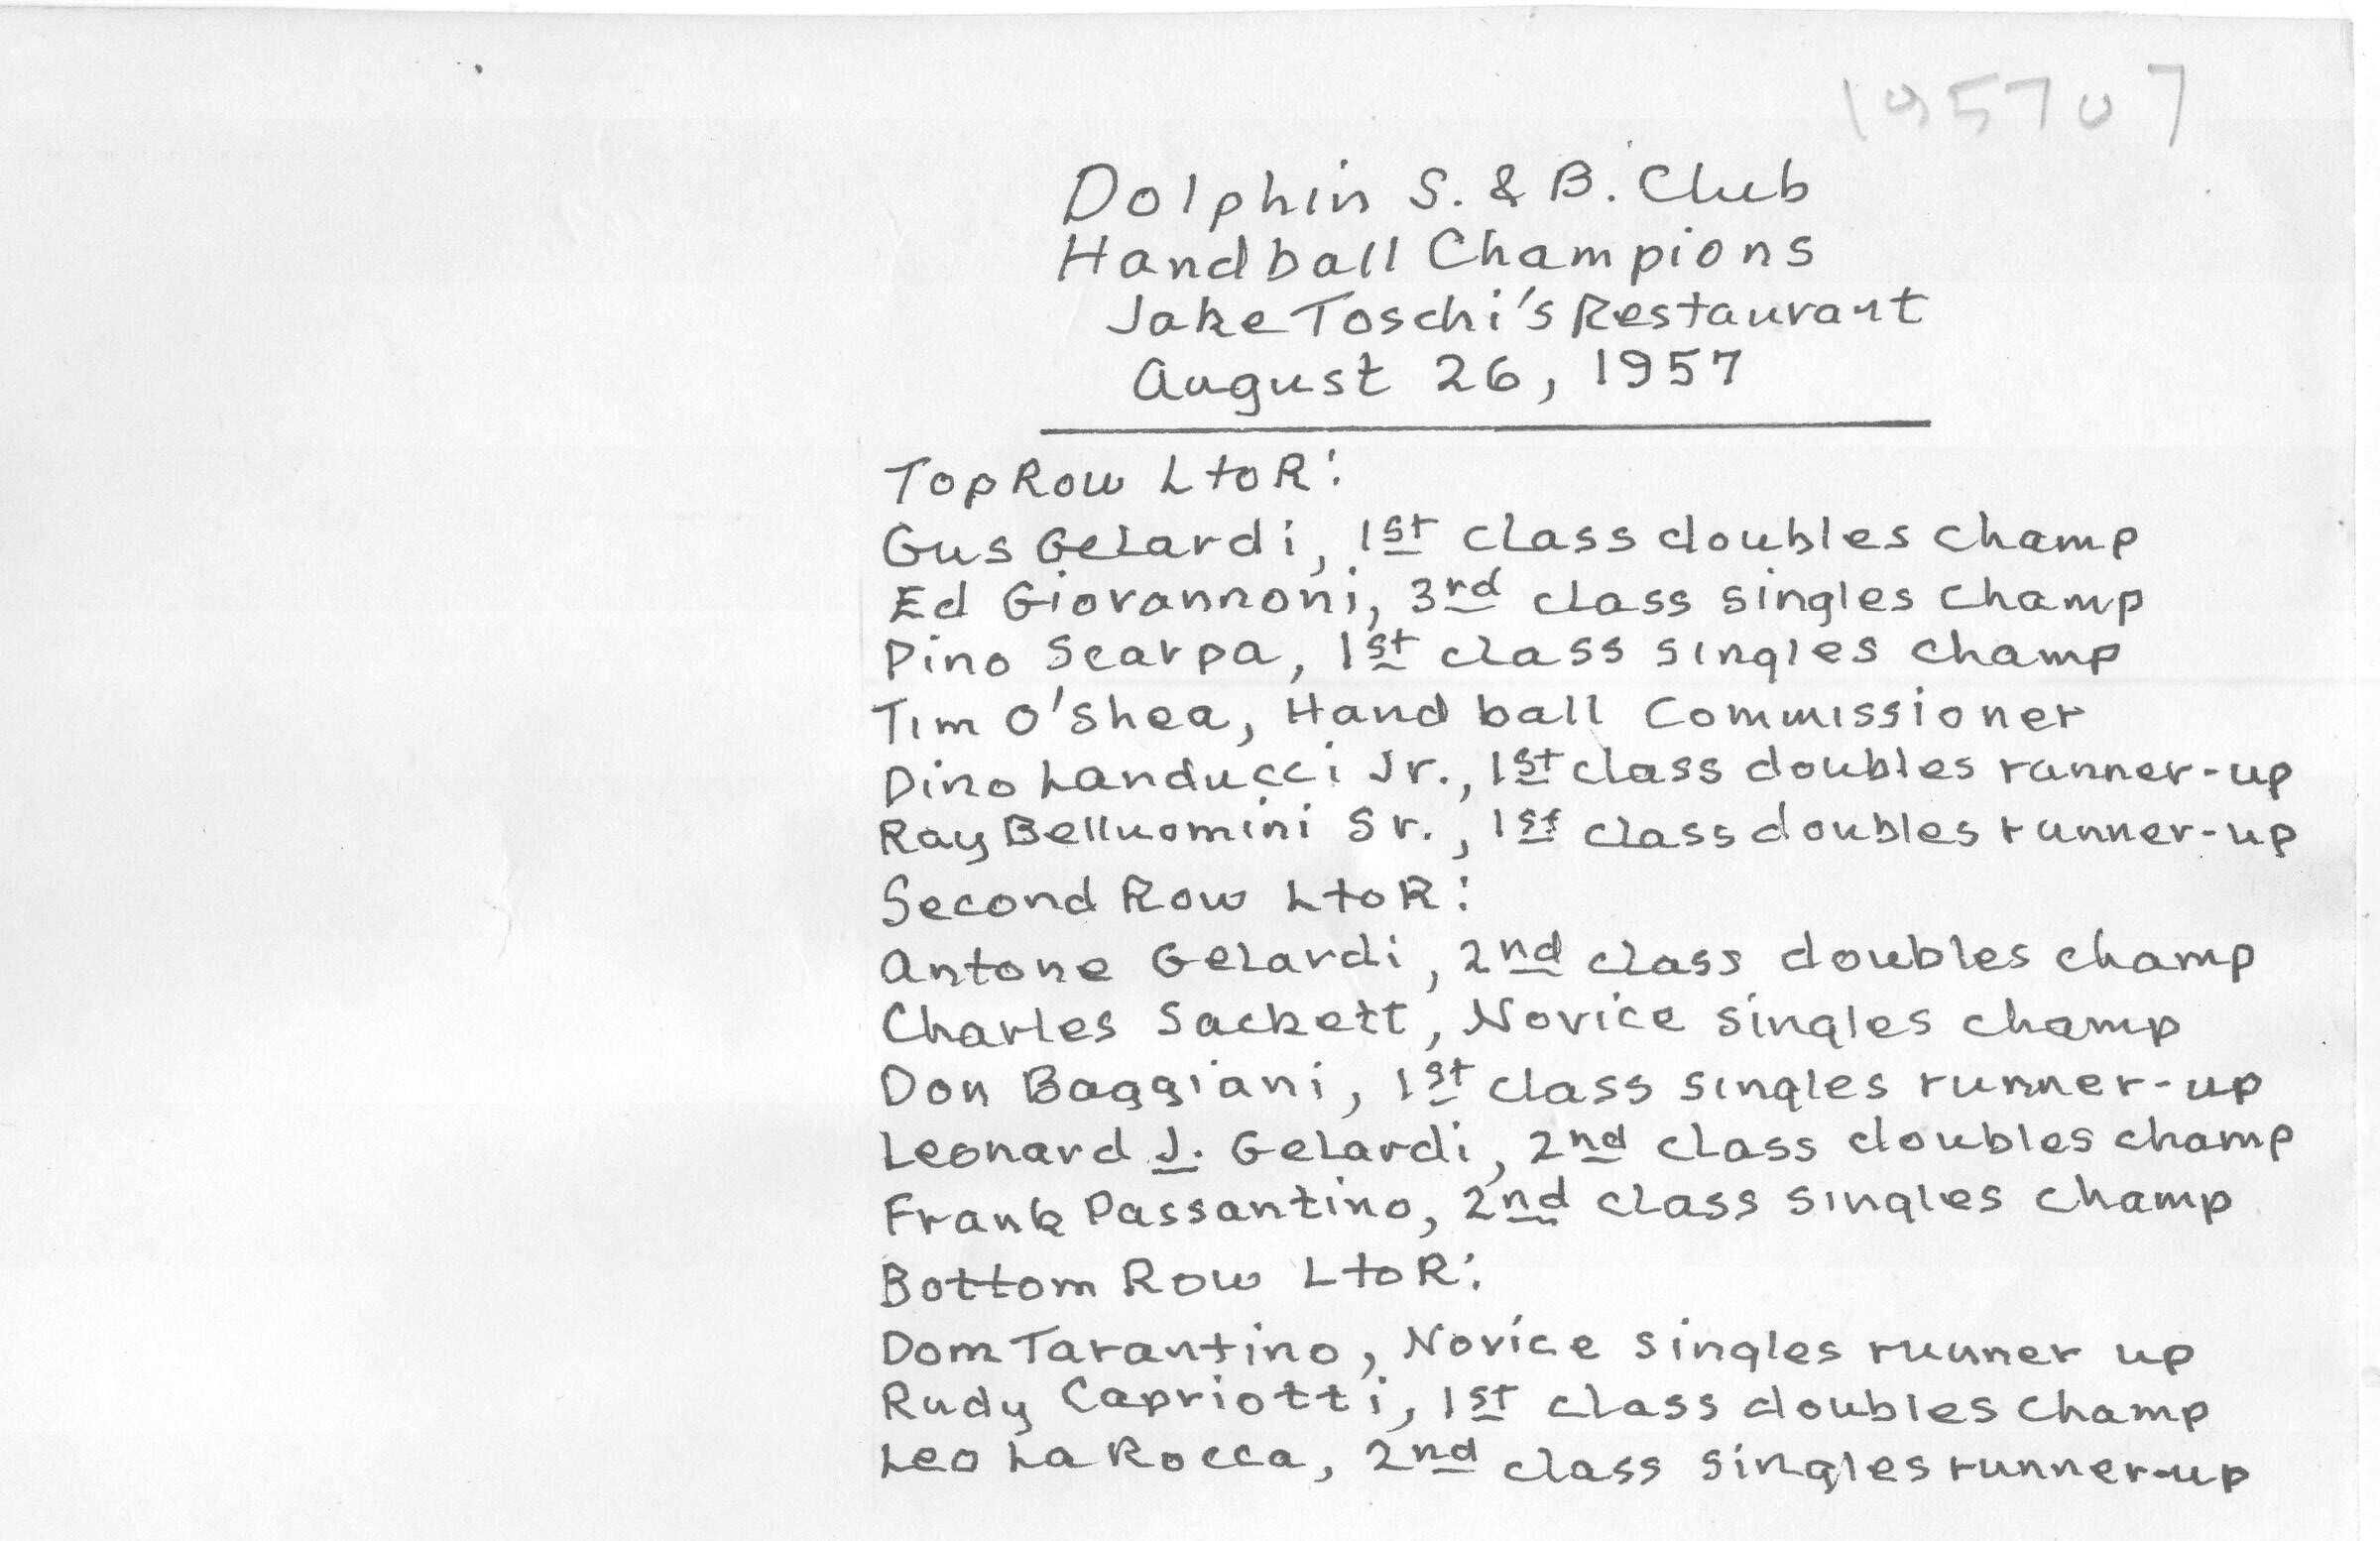 195707
Dolphin S. & B. Club
Handball Champions
Jake Toschi's Restaurant
August 26, 1957
Top Row L to R:
Gus Gelardi, 1st class doubles champ
Ed Giovannoni, 3rd class singles champ
Pino Scarpa, 1st class singles champ
Tim O'Shea, Handball Commissioner
Dino Landucci Jr., 1st class doubles runner-up
Ray Belluomini Sr., 1st class doubles runner-up
Second Row L to R:
Antone Gelardi, 2nd class doubles champ
Charles Sackett, Novice singles champ
Don Baggiani, 1st class singles runner-up
Leonard J. Gelardi, 2nd class doubles champ
Frank Passantino, 2nd class singles champ
Bottom Row L to R:
Dom Tarantino, Novice singles runner up
Rudy Capriotti, 1st class doubles champ
Leo La Rocca, 2nd class singles runner-up